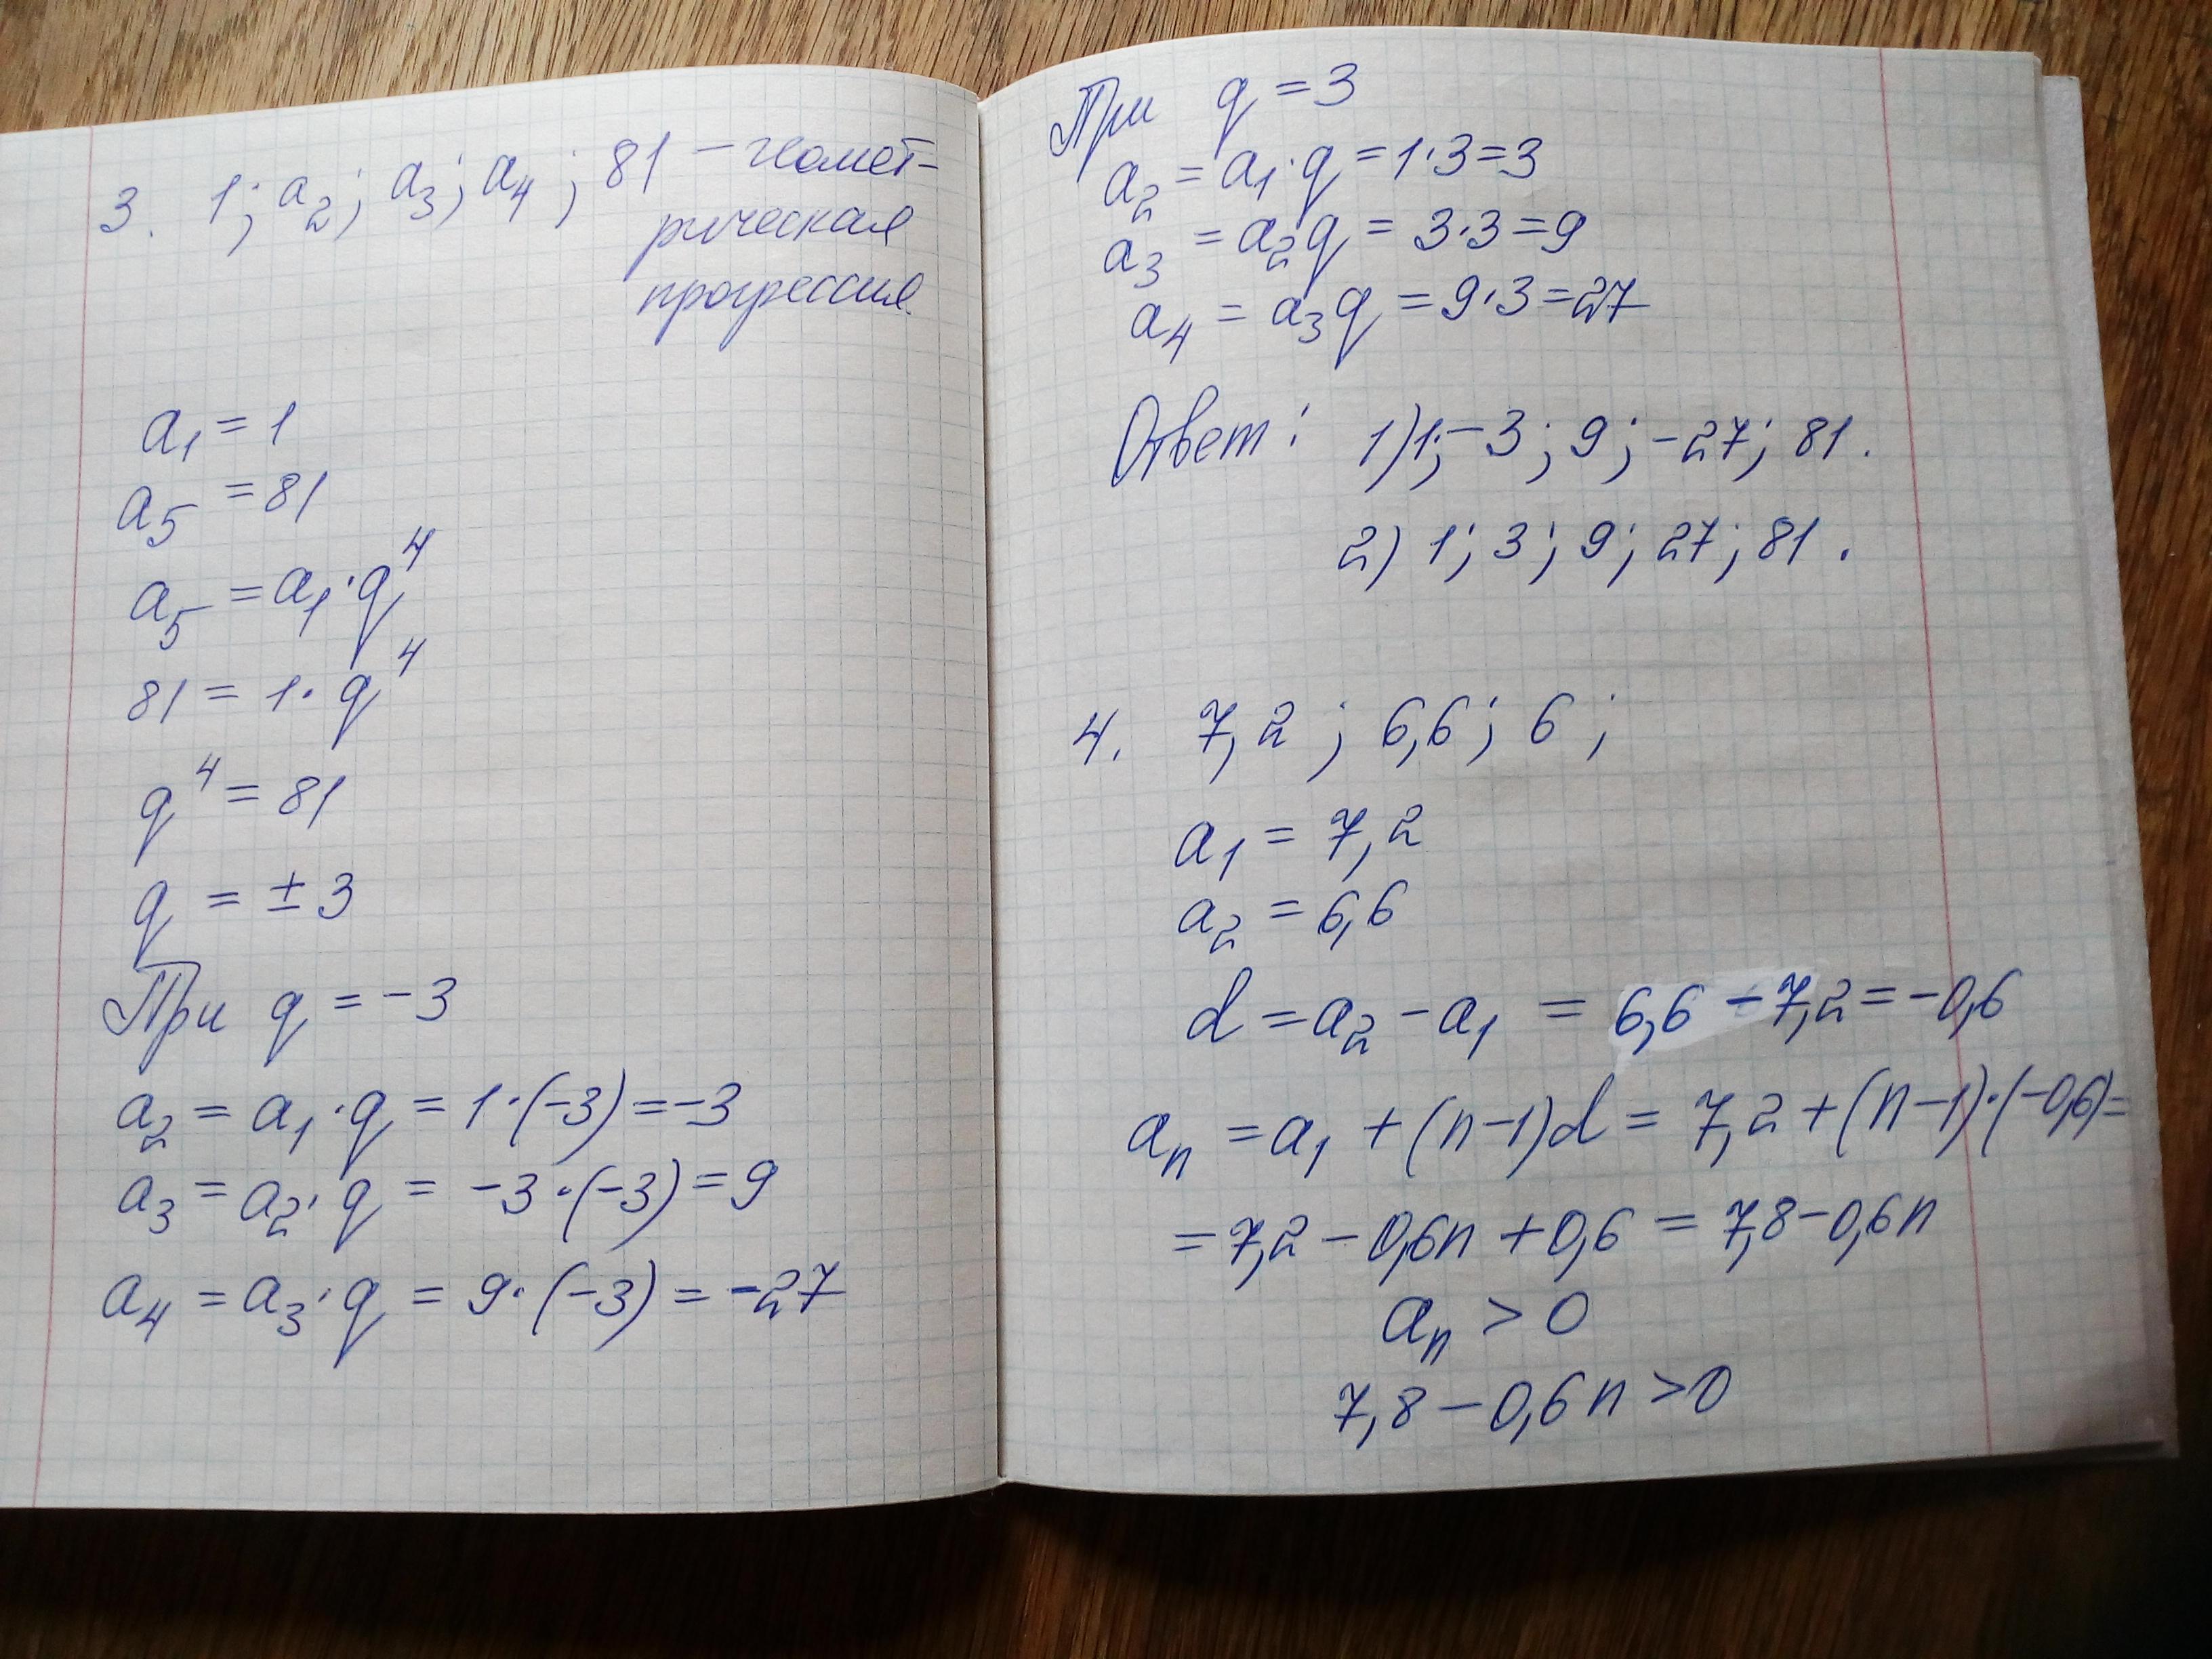 3. 1; a₂; a₃; a₄; 81 – геомет-
рическая
прогрессия.
a₁ = 1
a₅ = 81
a₅ = a₁·q⁴
81 = 1·q⁴
q⁴ = 81
q = ±3
При q = -3
a₂ = a₁·q = 1·(-3) = -3
a₃ = a₂·q = -3·(-3) = 9
a₄ = a₃·q = 9·(-3) = -27
При q = 3
a₂ = a₁·q = 1·3 = 3
a₃ = a₂q = 3·3 = 9
a₄ = a₃q = 9·3 = 27
Ответ: 1) 1; -3; 9; -27; 81.
2) 1; 3; 9; 27; 81.
4. 7,2; 6,6; 6;
a₁ = 7,2
a₂ = 6,6
d = a₂ - a₁ = 6,6 - 7,2 = -0,6
aₙ = a₁ + (n-1)d = 7,2 + (n-1)·(-0,6) =
= 7,2 - 0,6n + 0,6 = 7,8 - 0,6n
aₙ > 0
7,8 - 0,6n > 0